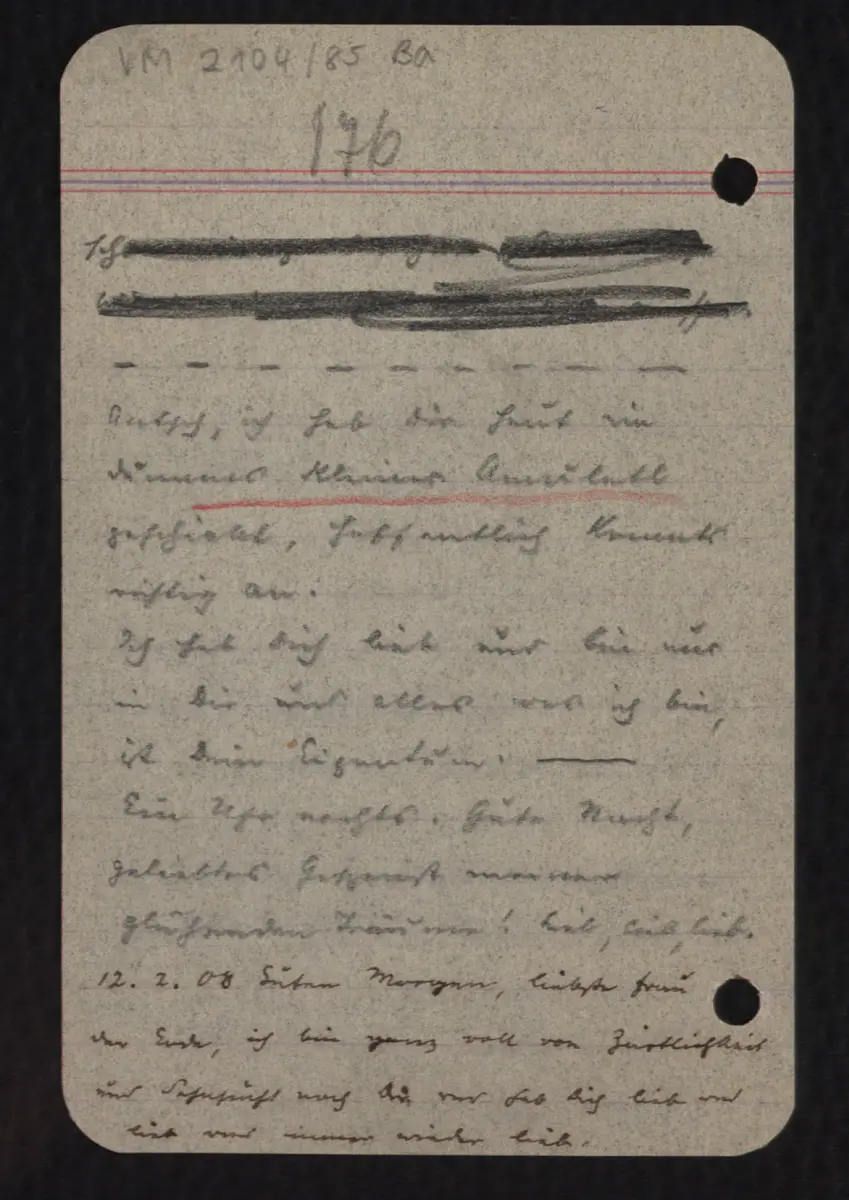 VM 2104/85 Ba
176
Antsch, ich hab Dir heut ein
dummes kleines Amulettl
geschickt, hoffentlich kommts
richtig an.
Ich hab Dich lieb und bin nur
in Dir und alles was ich bin,
ist Dein Eigentum. —
Ein Uhr nachts. Gute Nacht,
geliebtes Gespenst meiner
glühenden Träume! lieb, lieb, lieb.
12. 2. 08 Guten Morgen, liebste Frau
der Erde, ich bin ganz voll von Zärtlichkeit
und Sehnsucht nach Dir und hab Dich lieb und
lieb und immer wieder lieb.